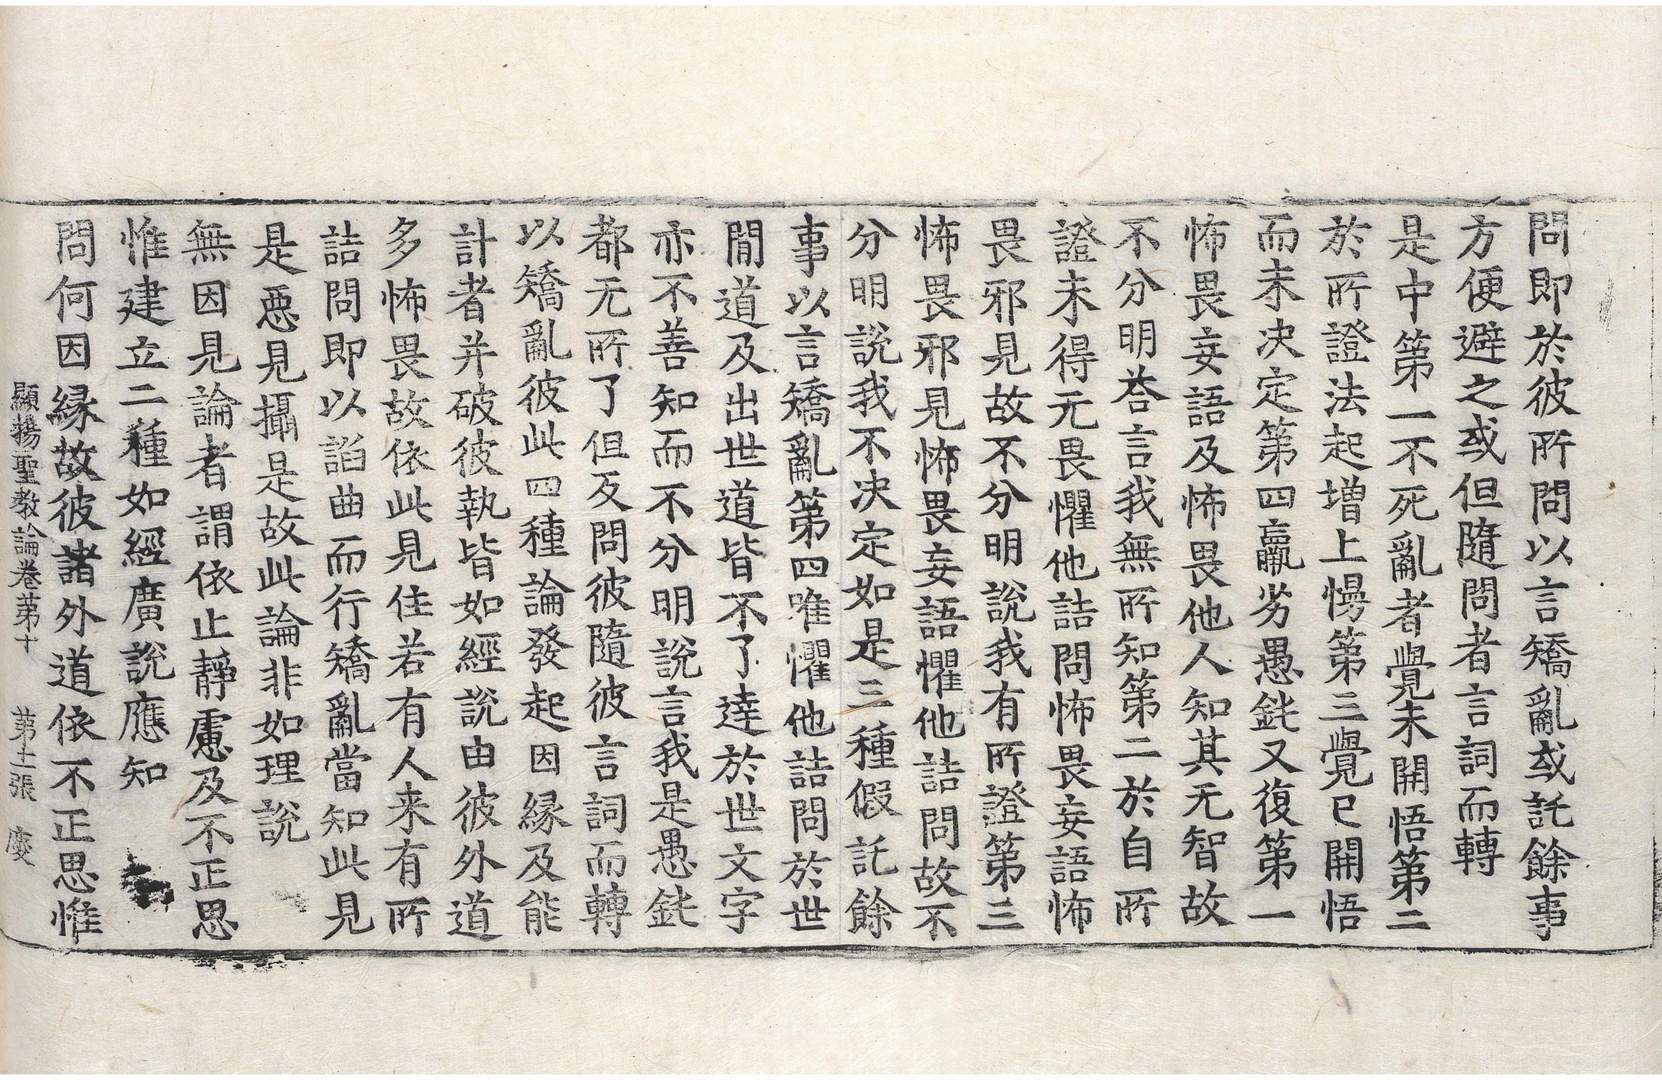 問即於彼所問以言矯亂或託餘事
方便避之或但隨問者言詞而轉
是中第一不死亂者覺未開悟第二
於所證法起增上慢第三覺已開悟
而未决定第四羸劣愚鈍又復第一
怖畏妄語及怖畏他人知其无智故
不分明荅言我無所知第二於自所
證未得无畏懼他詰問怖畏妄語怖
畏邪見故不分明說我有所證第三
怖畏邪見怖畏妄語懼他詰問故不
分明說我不决定如是三種假託餘
事以言矯亂第四唯懼他詰問於世
閒道及出世道皆不了達於世文字
亦不善知而不分明說言我是愚鈍
都无所了但反問彼隨彼言詞而轉
以矯亂彼此四種論發起因緣及能
計者并破彼執皆如經說由彼外道
多怖畏故依此見住若有人来有所
詰問即以諂曲而行矯亂當知此見
是惡見攝是故此論非如理說
無因見論者謂依止靜慮及不正思
惟建立二種如經廣說應知
問何因緣故彼諸外道依不正思惟
顯揚聖教論卷第十 第十一張 慶